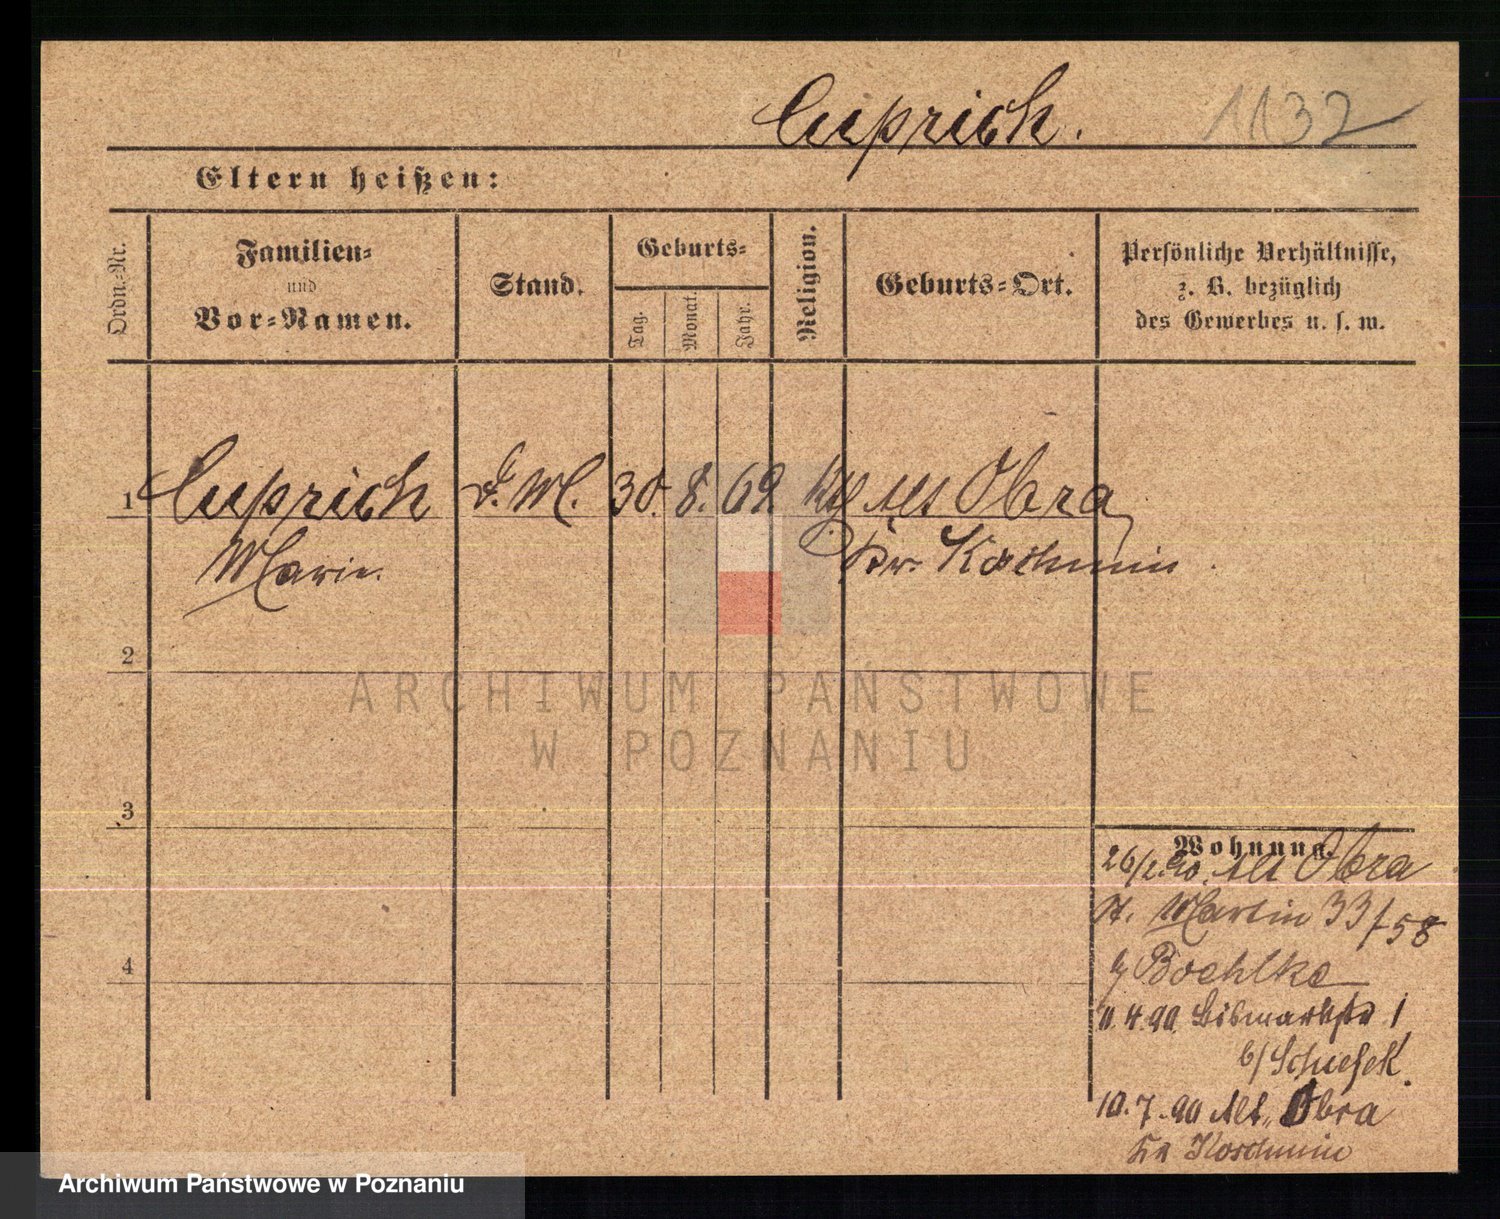 Cuprich. 1132
Eltern heißen:
Ordn.-Nr.
Familien-
und
Vor-Namen.
Stand.
Geburts-
Tag.
Monat.
Jahr.
Religion.
Geburts-Ort.
Persönliche Verhältnisse,
z. B. bezüglich
des Gewerbes u. s. w.
1 Cuprich D. M. 30. 8. 69 Alt Obra
Marie Kr. Koschmin
2
3
4
Wohnung.
26/2.90. Alt Obra
St. Martin 33/58
b/ Boehlke
11.4.90. Bismarkstr 1
b/
10.7.90 Alt Obra
Kr Koschmin
ARCHIWUM PAŃSTWOWE
W POZNANIU
Archiwum Państwowe w Poznaniu